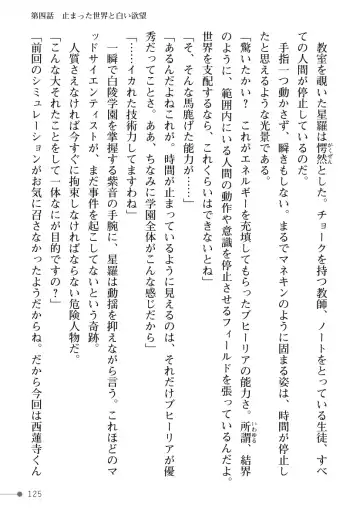 第四話 止まった世界と白い欲望
教室を覗いた星羅は愕然とした。チョークを持つ教師、ノートをとっている生徒、すべ
がくぜん
ての人間が停止しているのだ。
手指一つ動かさず、瞬きもしない。まるでマネキンのように固まる姿は、時間が停止し
たと思えるような光景である。
「驚いたかい? これがエネルギーを充填してもらったブヒーリアの能力さ。所謂、結界
いわゆる
のように、範囲内にいる人間の動作や意識を停止させるフィールドを張っているんだよ。
世界を支配するなら、これくらいはできないとね」
「そ、そんな馬鹿げた能力が……」
「あるんだよねこれが。時間が止まっているように見えるのは、それだけブヒーリアが優
秀だってことさ。ああ、ちなみに学園全体がこんな感じだから」
「……イカれた技術力してますわね」
一瞬で白陵学園を掌握する紫音の手腕に、星羅は動揺を抑えながら言う。これほどのマ
ッドサイエンティストが、まだ事件を起こしてないという奇跡。
人質さえなければ今すぐに拘束しなければならない危険人物だ。
「こんな大それたことをして一体なにが目的ですの?」
「前回のシミュレーションがお気に召さなかったようだからね。だから今回は西蓮寺くん
125